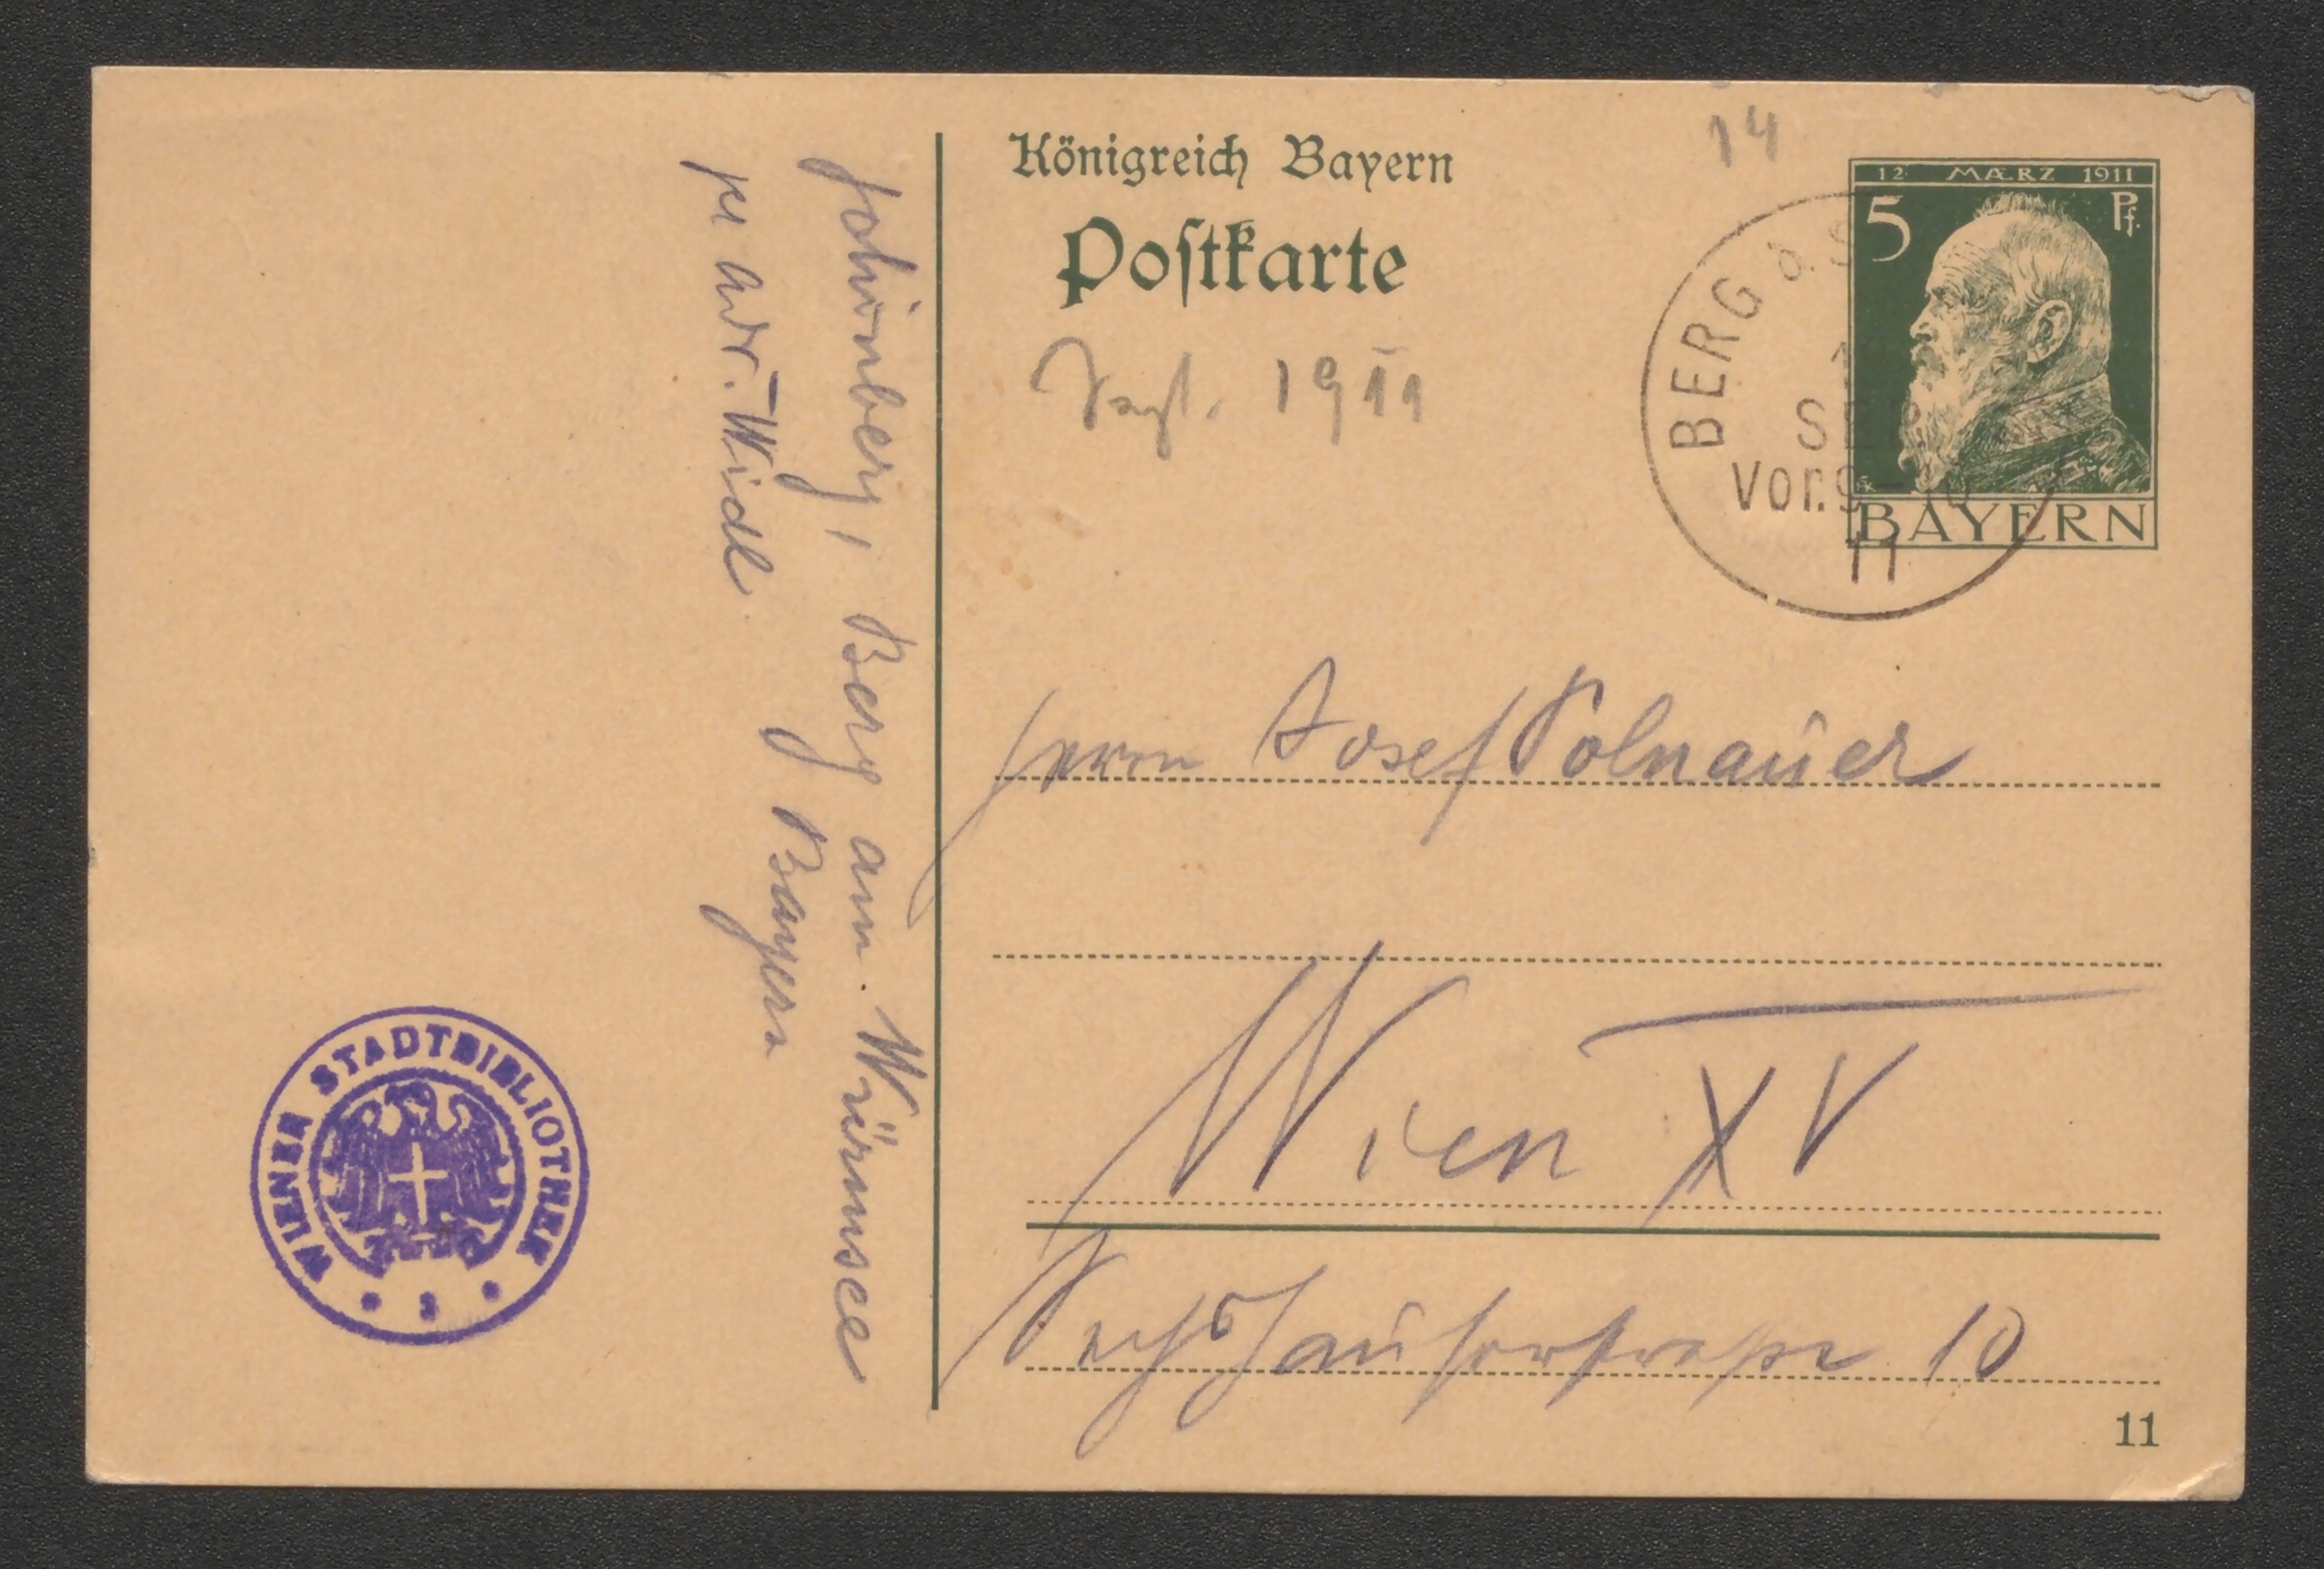 Schönberg, Berg am Würmsee
pr Adr. Widl Bayern
Königreich Bayern
Postkarte
Sept. 1911
14
12 MÆRZ 1911
5 Pf.
BAYERN
BERG
SE
Vor. 9
11
Herrn Josef Polnauer
Wien XV
Sechshauserstrasse 10
11
WIENER STADTBIBLIOTHEK